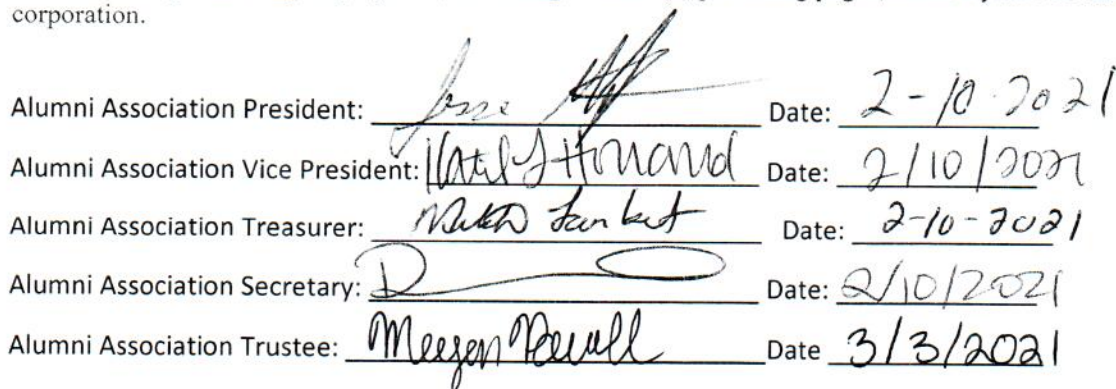 corporation.
Alumni Association President: Jesse Date: 2-10-2021
Alumni Association Vice President: Howard Date: 2/10/2021
Alumni Association Treasurer: Date: 2-10-2021
Alumni Association Secretary: Date: 2/10/2021
Alumni Association Trustee: Meegen Date 3/3/2021